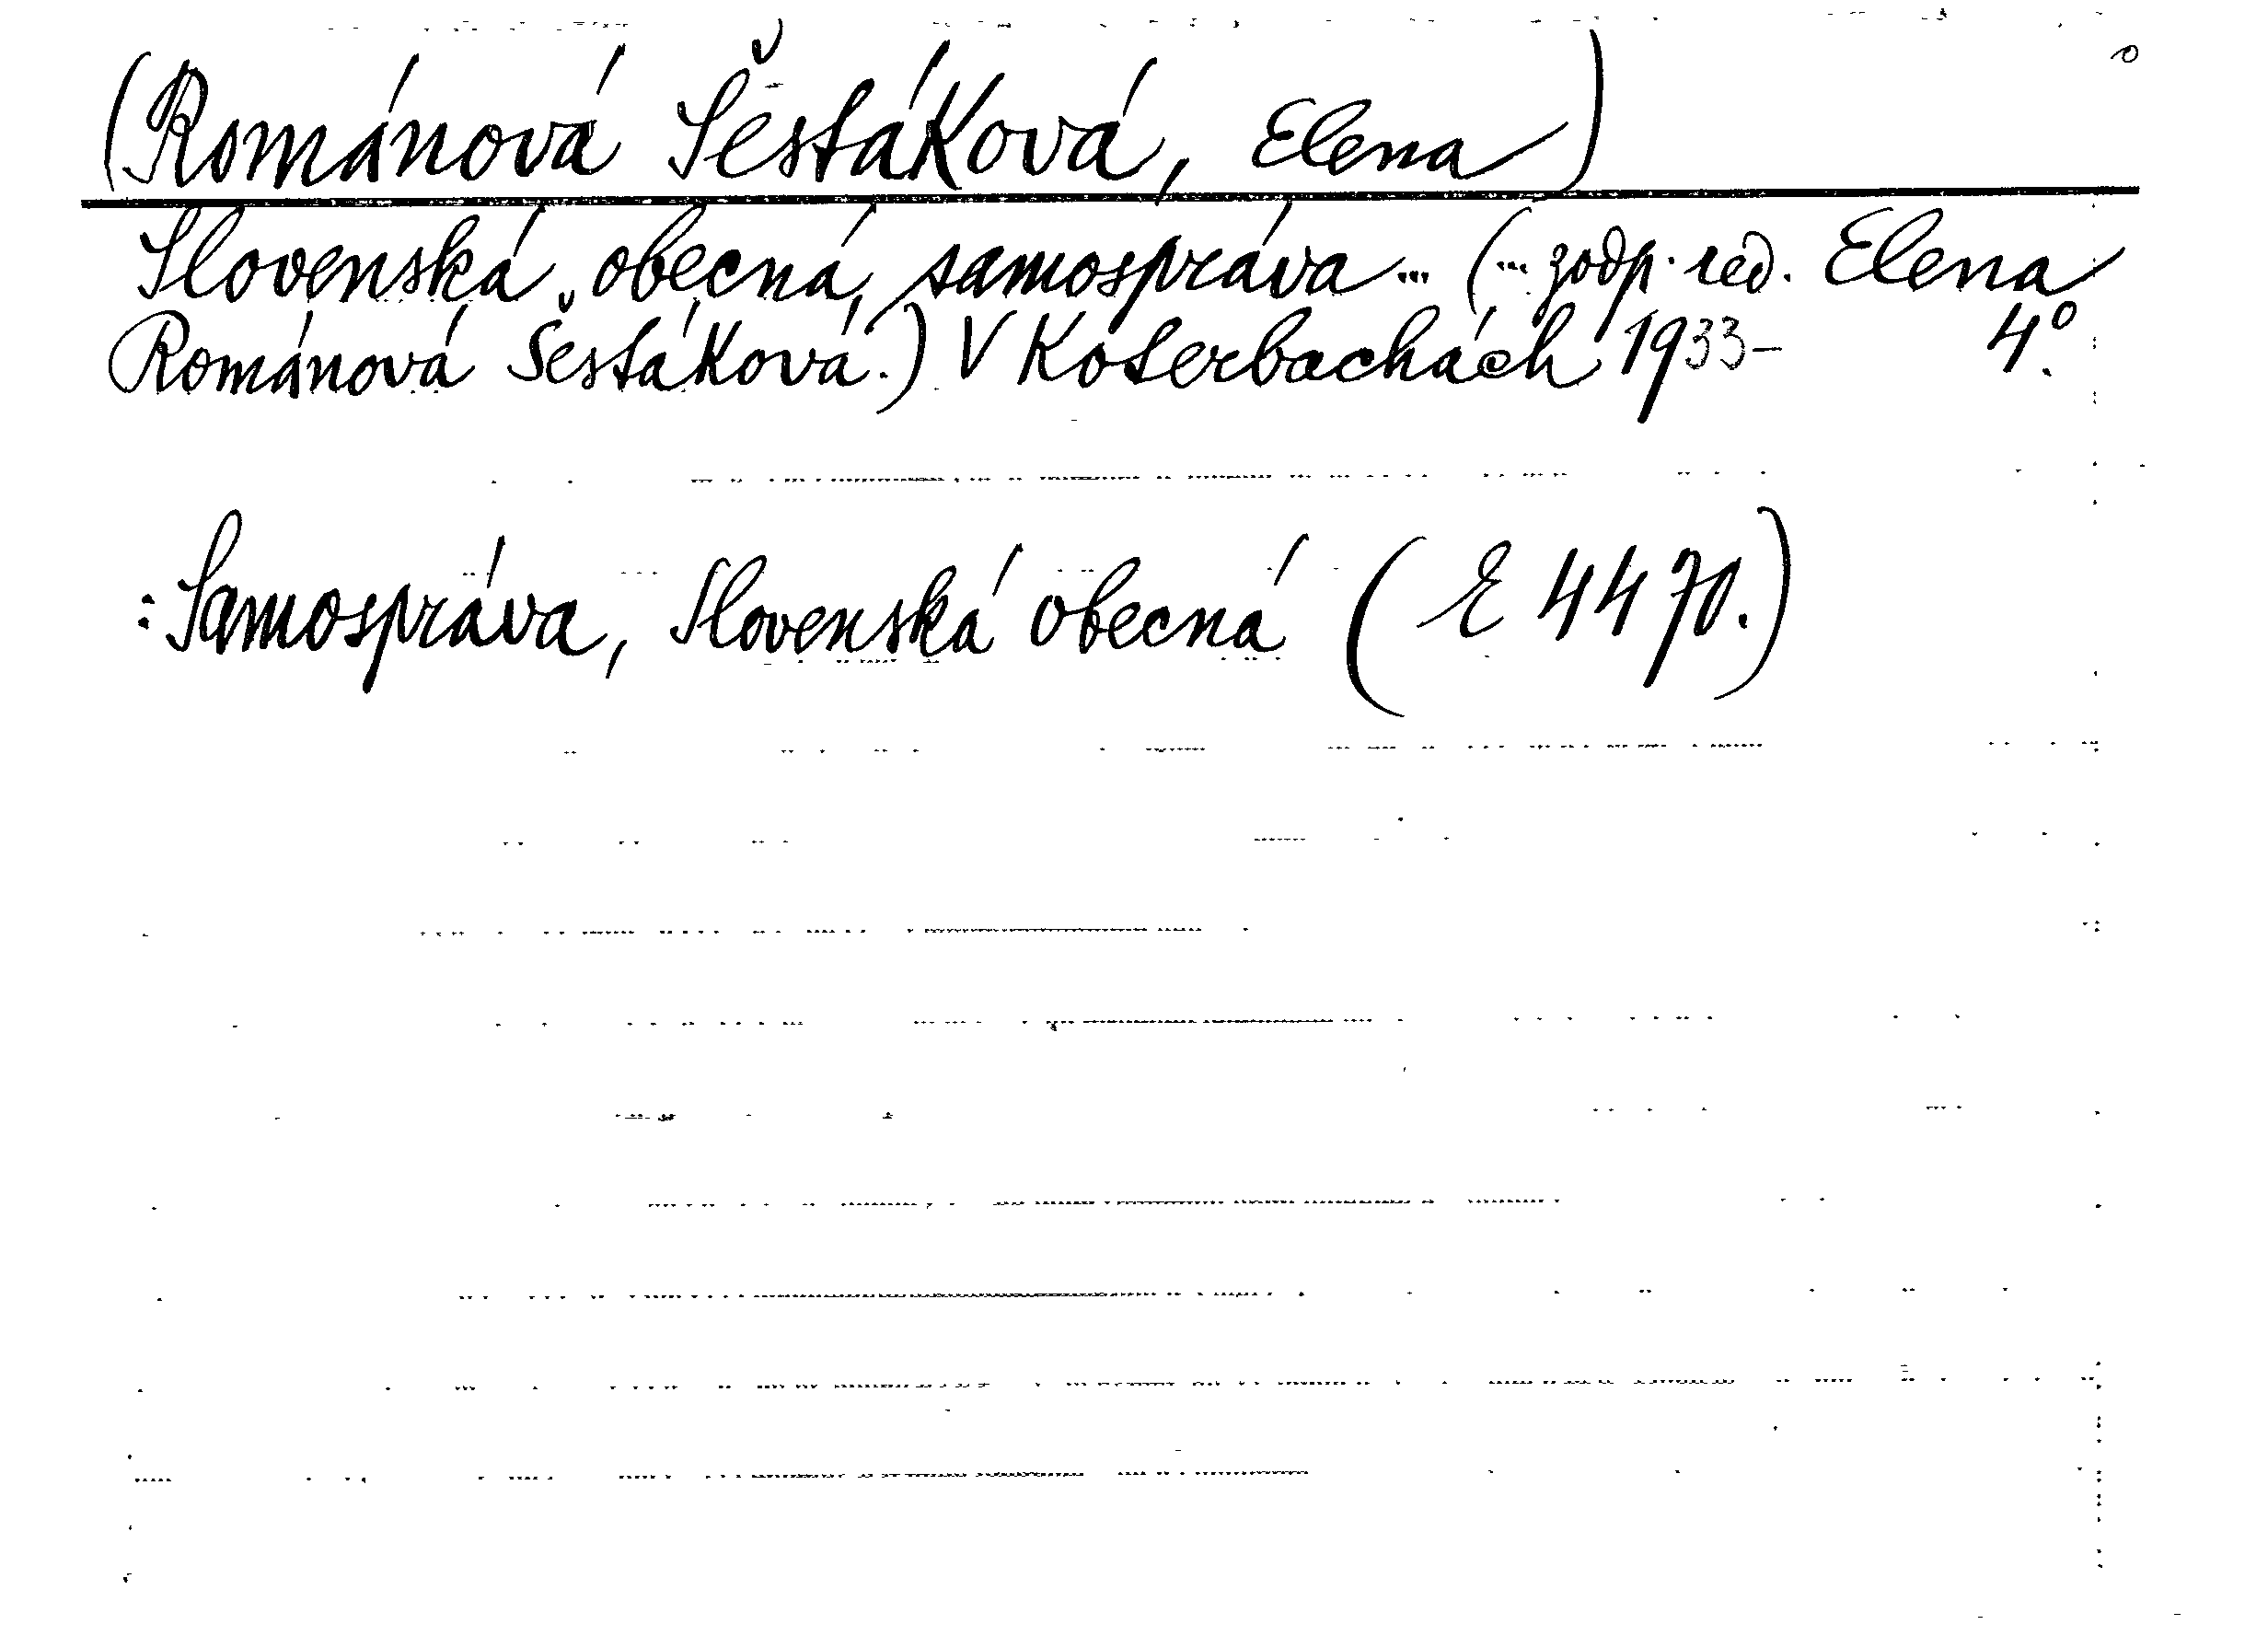 (Románová Šestáková, Elena)
Slovenská obecná samospráva ... (... zodp. red. Elena
Románová Šestáková.) V Koterbachách 1933- 4°.
: Samospráva, Slovenská obecná (E 4470.)